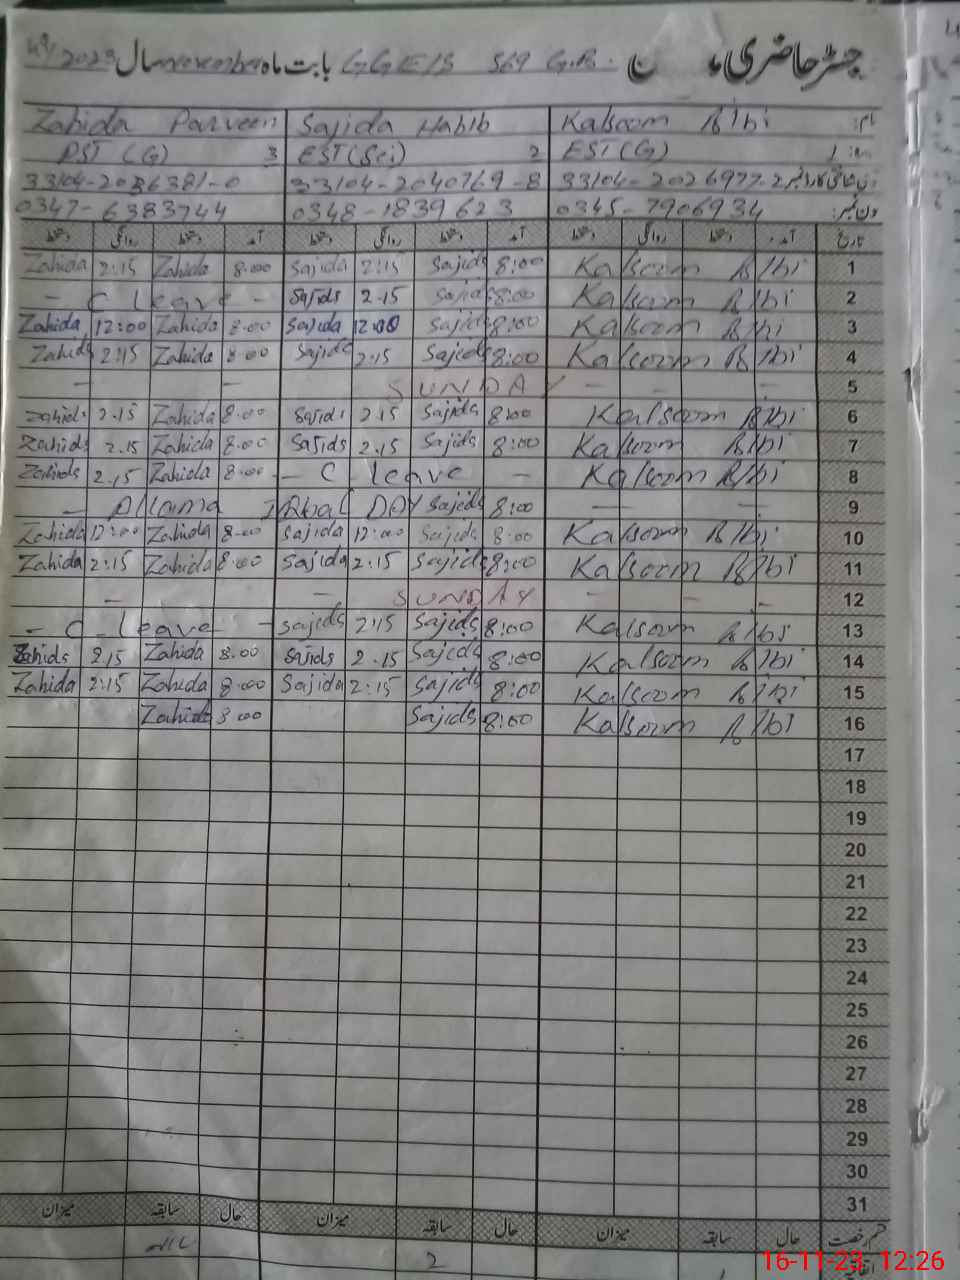 جسٹر حاضری ن بابت ماہ GGE/S 569 G.B. november سال 2023
نام: Kalsoom Bibi Sajida Habib Zahida Parveen
1 EST (G) 2 EST (Sci) 3 PST (G)
33104-2026977-2 33104-2040769-8 33104-2036381-0
ون نمبر: 0345-7906934 0348-1839623 0347-6383744
تاریخ آمد دستخط روانگی دستخط آمد دستخط روانگی دستخط آمد دستخط روانگی دستخط
1 Kalsoom Bibi 8:00 Sajida 2:15 Sajida 8:00 Zahida 2:15 Zahida
2 Kalsoom Bibi 8:00 Sajida 2.15 Sajids - C leave -
3 Kalsoom Bibi 8:00 Sajida 12:00 Sajida 8:00 Zahida 12:00 Zahida
4 Kalsoom Bibi 8:00 Sajeds 2:15 Sajids 8:00 Zahida 2:15 Zahids
5 - - - SUNDAY - -
6 Kalsoom Bibi 8:00 Sajids 2.15 Sajids 8:00 Zahida 2.15 Zahids
7 Kalsoom Bibi 8:00 Sajids 2.15 Sajids 8:00 Zahida 2.15 Zahids
8 Kalsoom Bibi - C leave - 8:00 Zahida 2.15 Zahids
9 - - 8:00 Sajeds - Allama Iqbal DAY
10 Kalsoom Bibi 8:00 Sajids 12:00 Sajida 8:00 Zahida 12:00 Zahida
11 Kalsoom Bibi 8:00 Sajids 2:15 Sajida 8:00 Zahida 2:15 Zahida
12 - - - SUNDAY - -
13 Kalsoom Bibi 8:00 Sajids 2:15 Sajids - C leave -
14 Kalsoom Bibi 8:00 Sajeds 2.15 Sajids 8:00 Zahida 2.15 Zahids
15 Kalsoom Bibi 8:00 Sajids 2:15 Sajida 8:00 Zahida 2:15 Zahida
16 Kalsoom Bibi 8:00 Sajids 8:00 Zahida
17
18
19
20
21
22
23
24
25
26
27
28
29
30
31
قسم رخصت حال سابقہ میزان حال سابقہ میزان حال سابقہ میزان
2 nil
16-11-23, 12:26